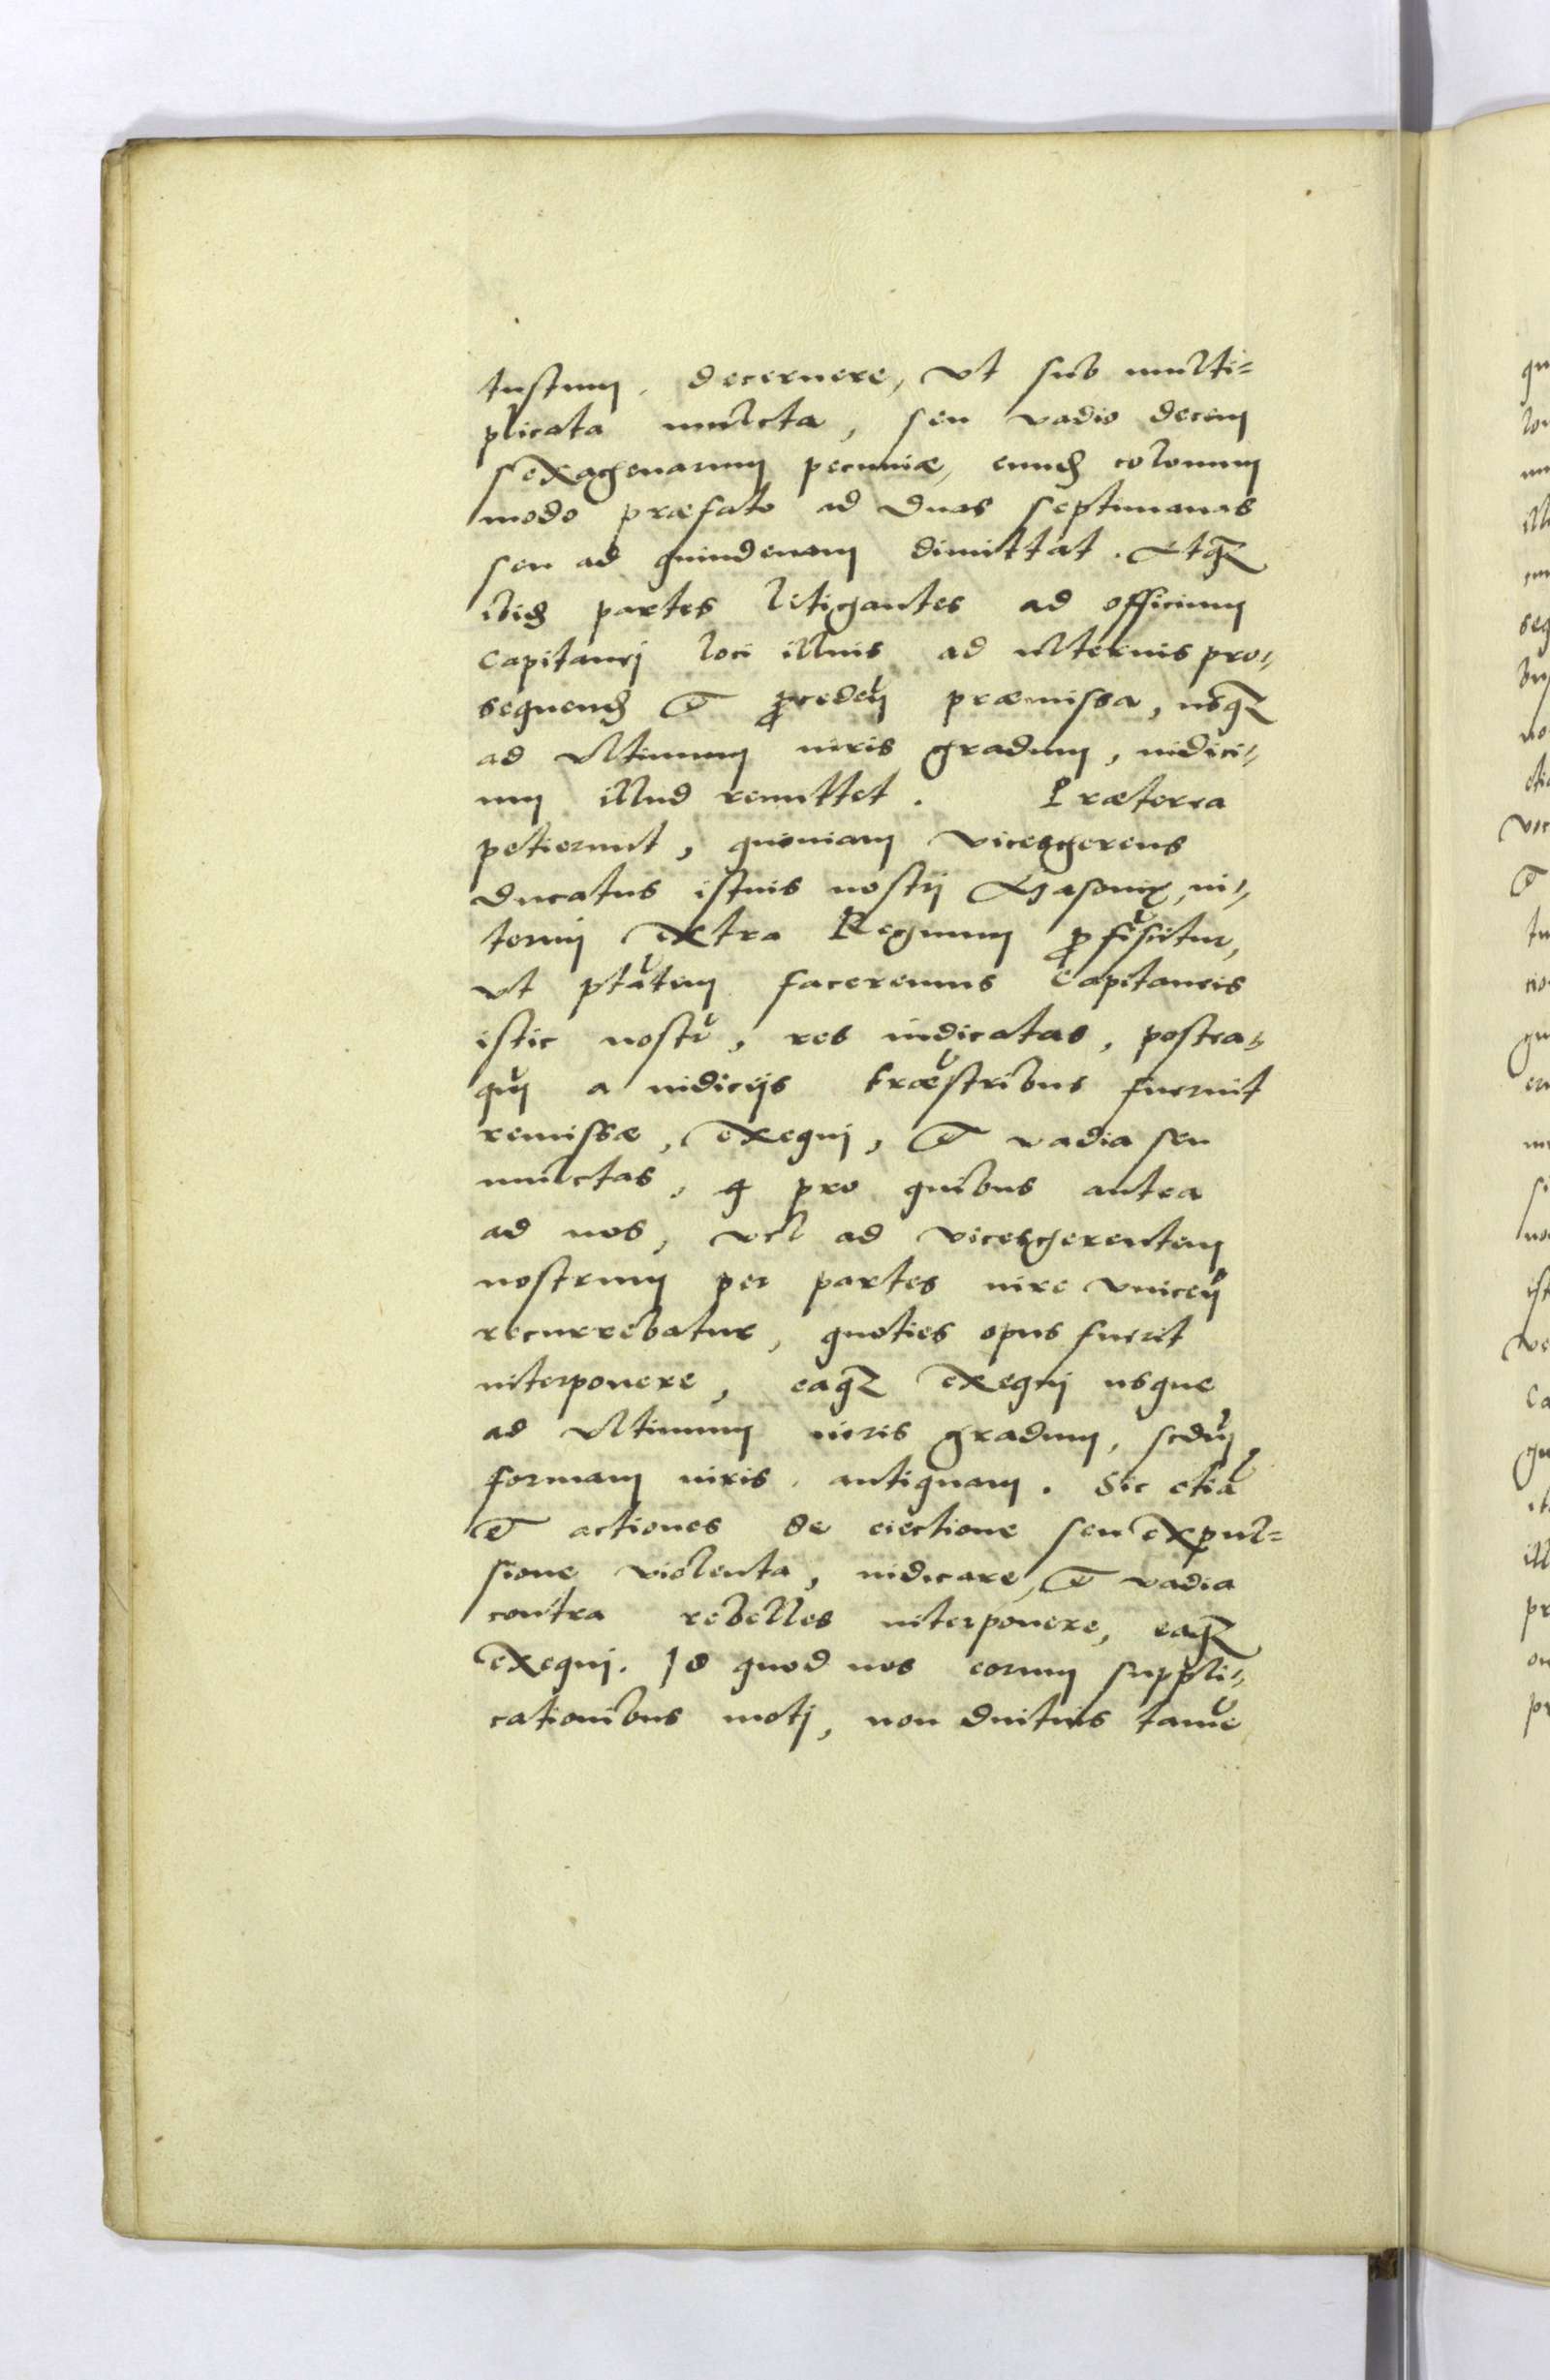 tustum, decernere, vt sub multi=
plicata mulcta, seu vadio decem
sexagenarum pecuniæ, eund colonum
modo præfato ad duas septimanas
seu ad quindenam dimittat. Atq
ibid partes litigantes ad officium
Capitanei loci illius ad vlterius pro=
sequend et proceden præmissa, usq
ad vltimum iuris gradum, iudici=
um illud remittet. Præterea
petierunt, quoniam vicesgerens
ducatus istius nostri Masoviæ, in=
terim extra Regnum proficiscitur,
vt ptatem faceremus Capitaneis
istic nostr, res iudicatas, postea=
qu a iudicijs træstribus fuerint
remissæ, exequi, et vadia seu
mulctas, q pro quibus antea
ad nos, vel ad vicesgerentem
nostrum per partes iure vincen
recurrebatur, quoties opus fuerit
interponere, eaq exequi usque
ad vltimum iuris gradum, scdu
formam iuris antiquam. Sic etia
et actiones de eiectione seu expul=
sione violenta, iudicare, et vadia
contra rebelles interponere, eaq
exequi. Id quod nos eorum suppli=
cationibus moti, non diutius tame